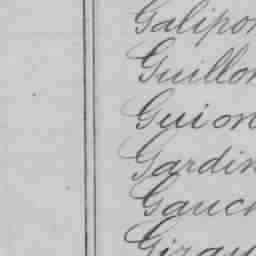 Galipon
Guillon
Guion
Gardin
Gauch
Giray